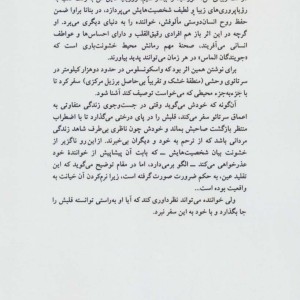 رؤیاپروری‌های زیبا و لطیف شخصیت‌هایش می‌پردازد، در بنانا برآ ضمن
حفظ روح انسان‌دوستی مألوفش، خواننده را به دنیای دیگری می‌برد.
گرچه در این اثر باز هم افرادی رقیق‌القلب و دارای احساس‌ها و عواطف
انسانی می‌آفریند، صحنهٔ مهم رمانش محیط خشونت‌باری است که
«جویندگان الماس» در آن زمان می‌توانند پدید بیاورند.
برای نوشتن همین اثر بود که واسکونسلوس در حدود دوهزار کیلومتر در
سرتائوی وحشی (منطقهٔ خشک و تقریباً بی‌حاصل برزیل مرکزی) سفر کرد تا
با جزء‌به‌جزء محیطی که می‌خواست توصیف کند آشنا شود.
آن‌گونه که خودش می‌گوید وقتی در جست‌وجوی زندگی متفاوتی به
اعماق سرتائو سفر می‌کند، قلبش را در پای درختی می‌گذارد تا با اضطراب
منتظر بازگشت صاحبش بماند و خودش چون ناظری بی‌طرف شاهد زندگی
مردانی باشد که از ترحم به خود و دیگران بی‌خبرند. ازاین‌رو ناگزیر از
خشونت بیان شخصیت‌هایش — که بابت آن پیشاپیش از خوانندهٔ خود
عذرخواهی می‌کند — الگو برمی‌دارد، اما در مقام توضیح می‌گوید که این
تقلید عین، به حکم ضرورت صورت گرفته است، زیرا نرم‌کردن آن خیانت به
واقعیت بوده است...
ولی خواننده می‌تواند نظرداوری کند که آیا او به‌راستی توانسته قلبش را
جا بگذارد و با خود به این سفر نبرد.